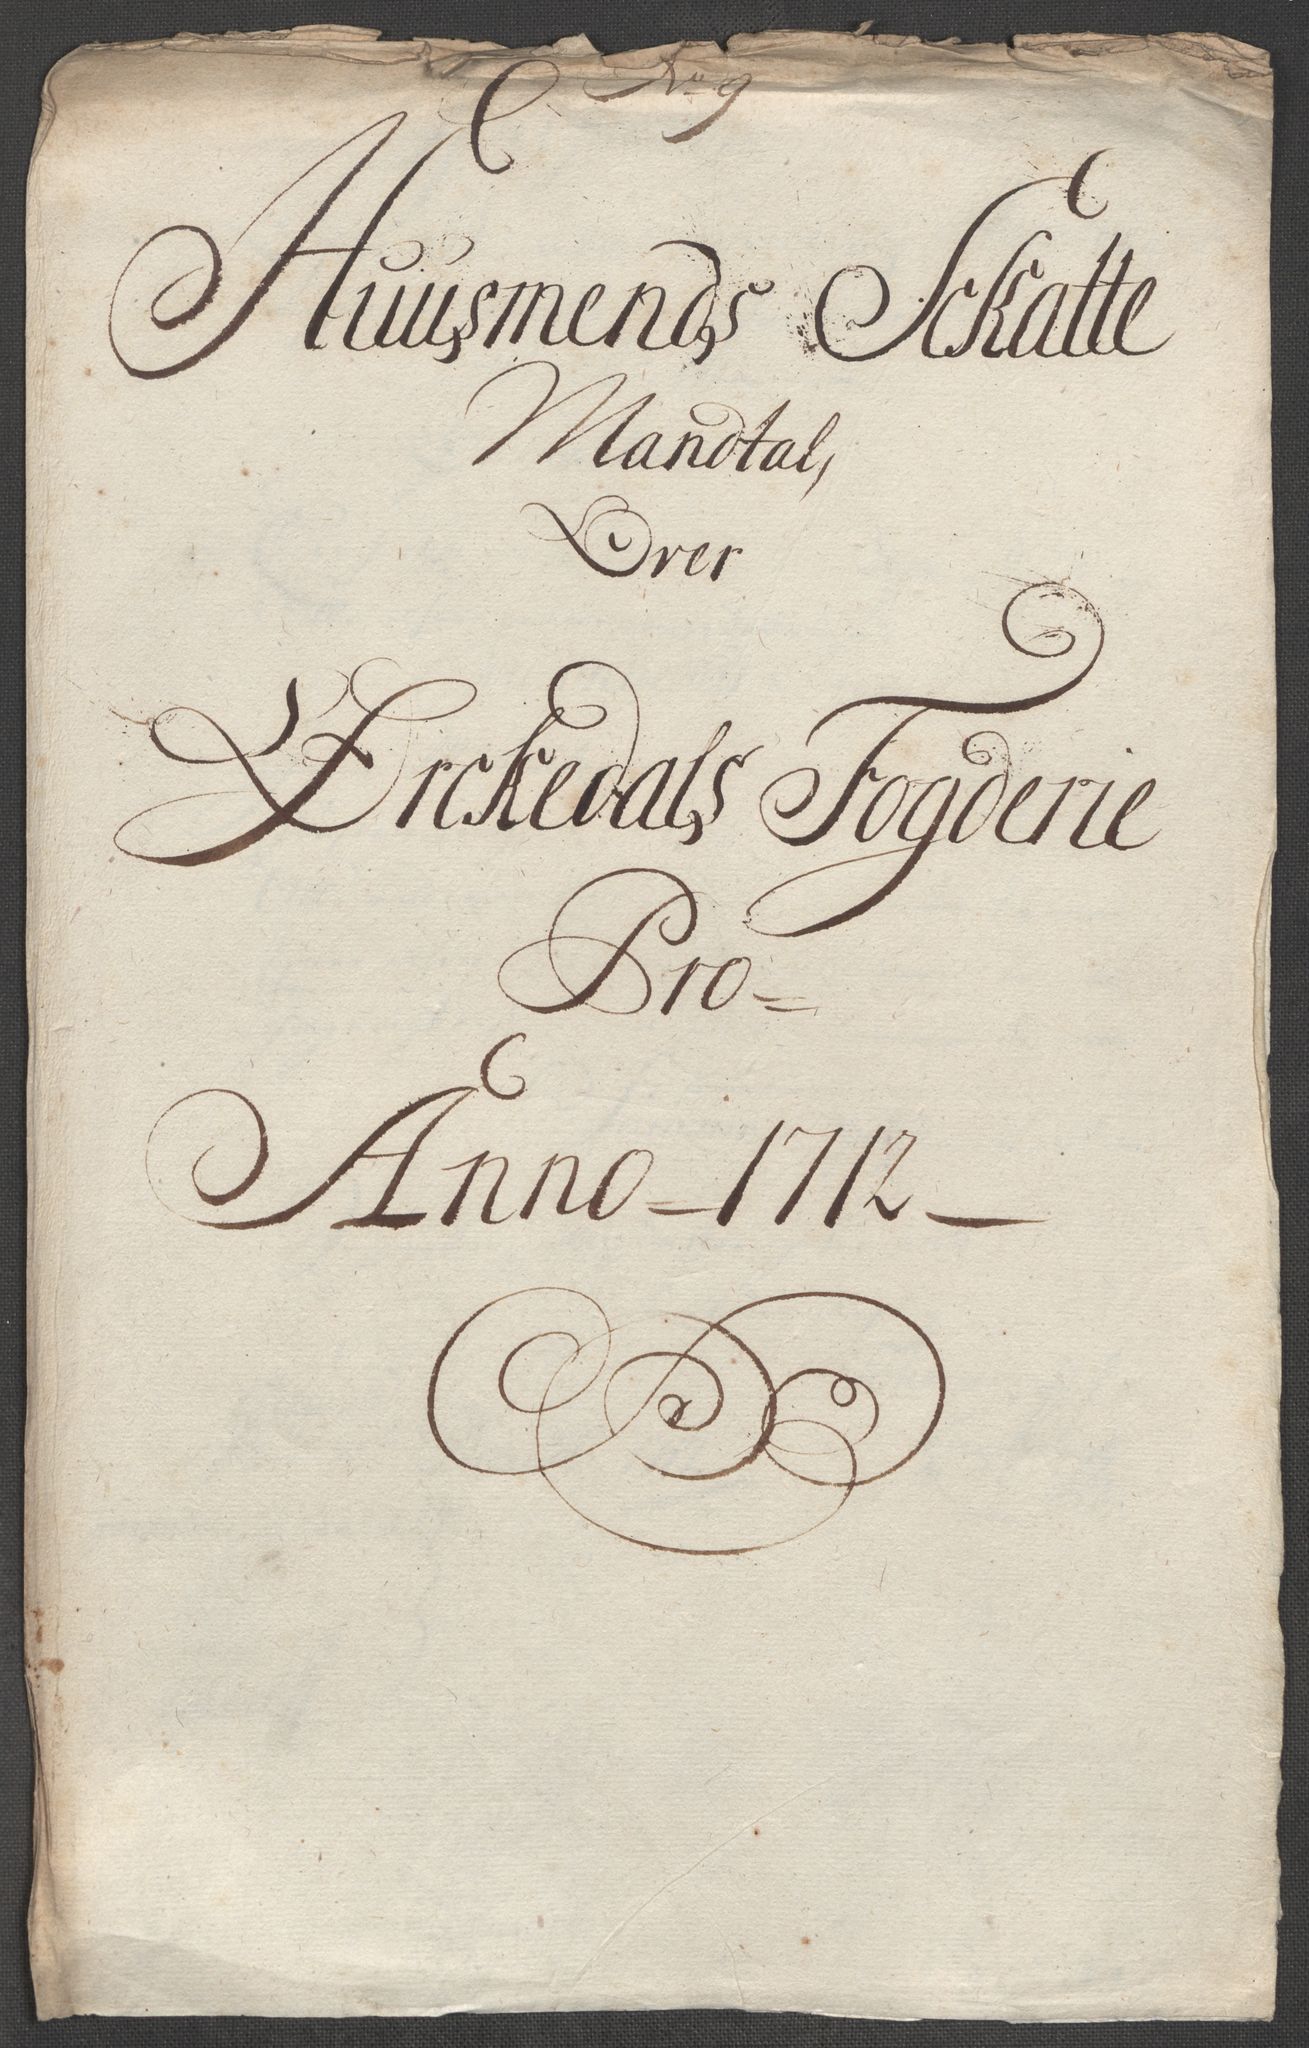 No 9
Huusmends Schatte
Mandtal,
Over
Ørckedals Fogderie
Pro=
Anno=1712